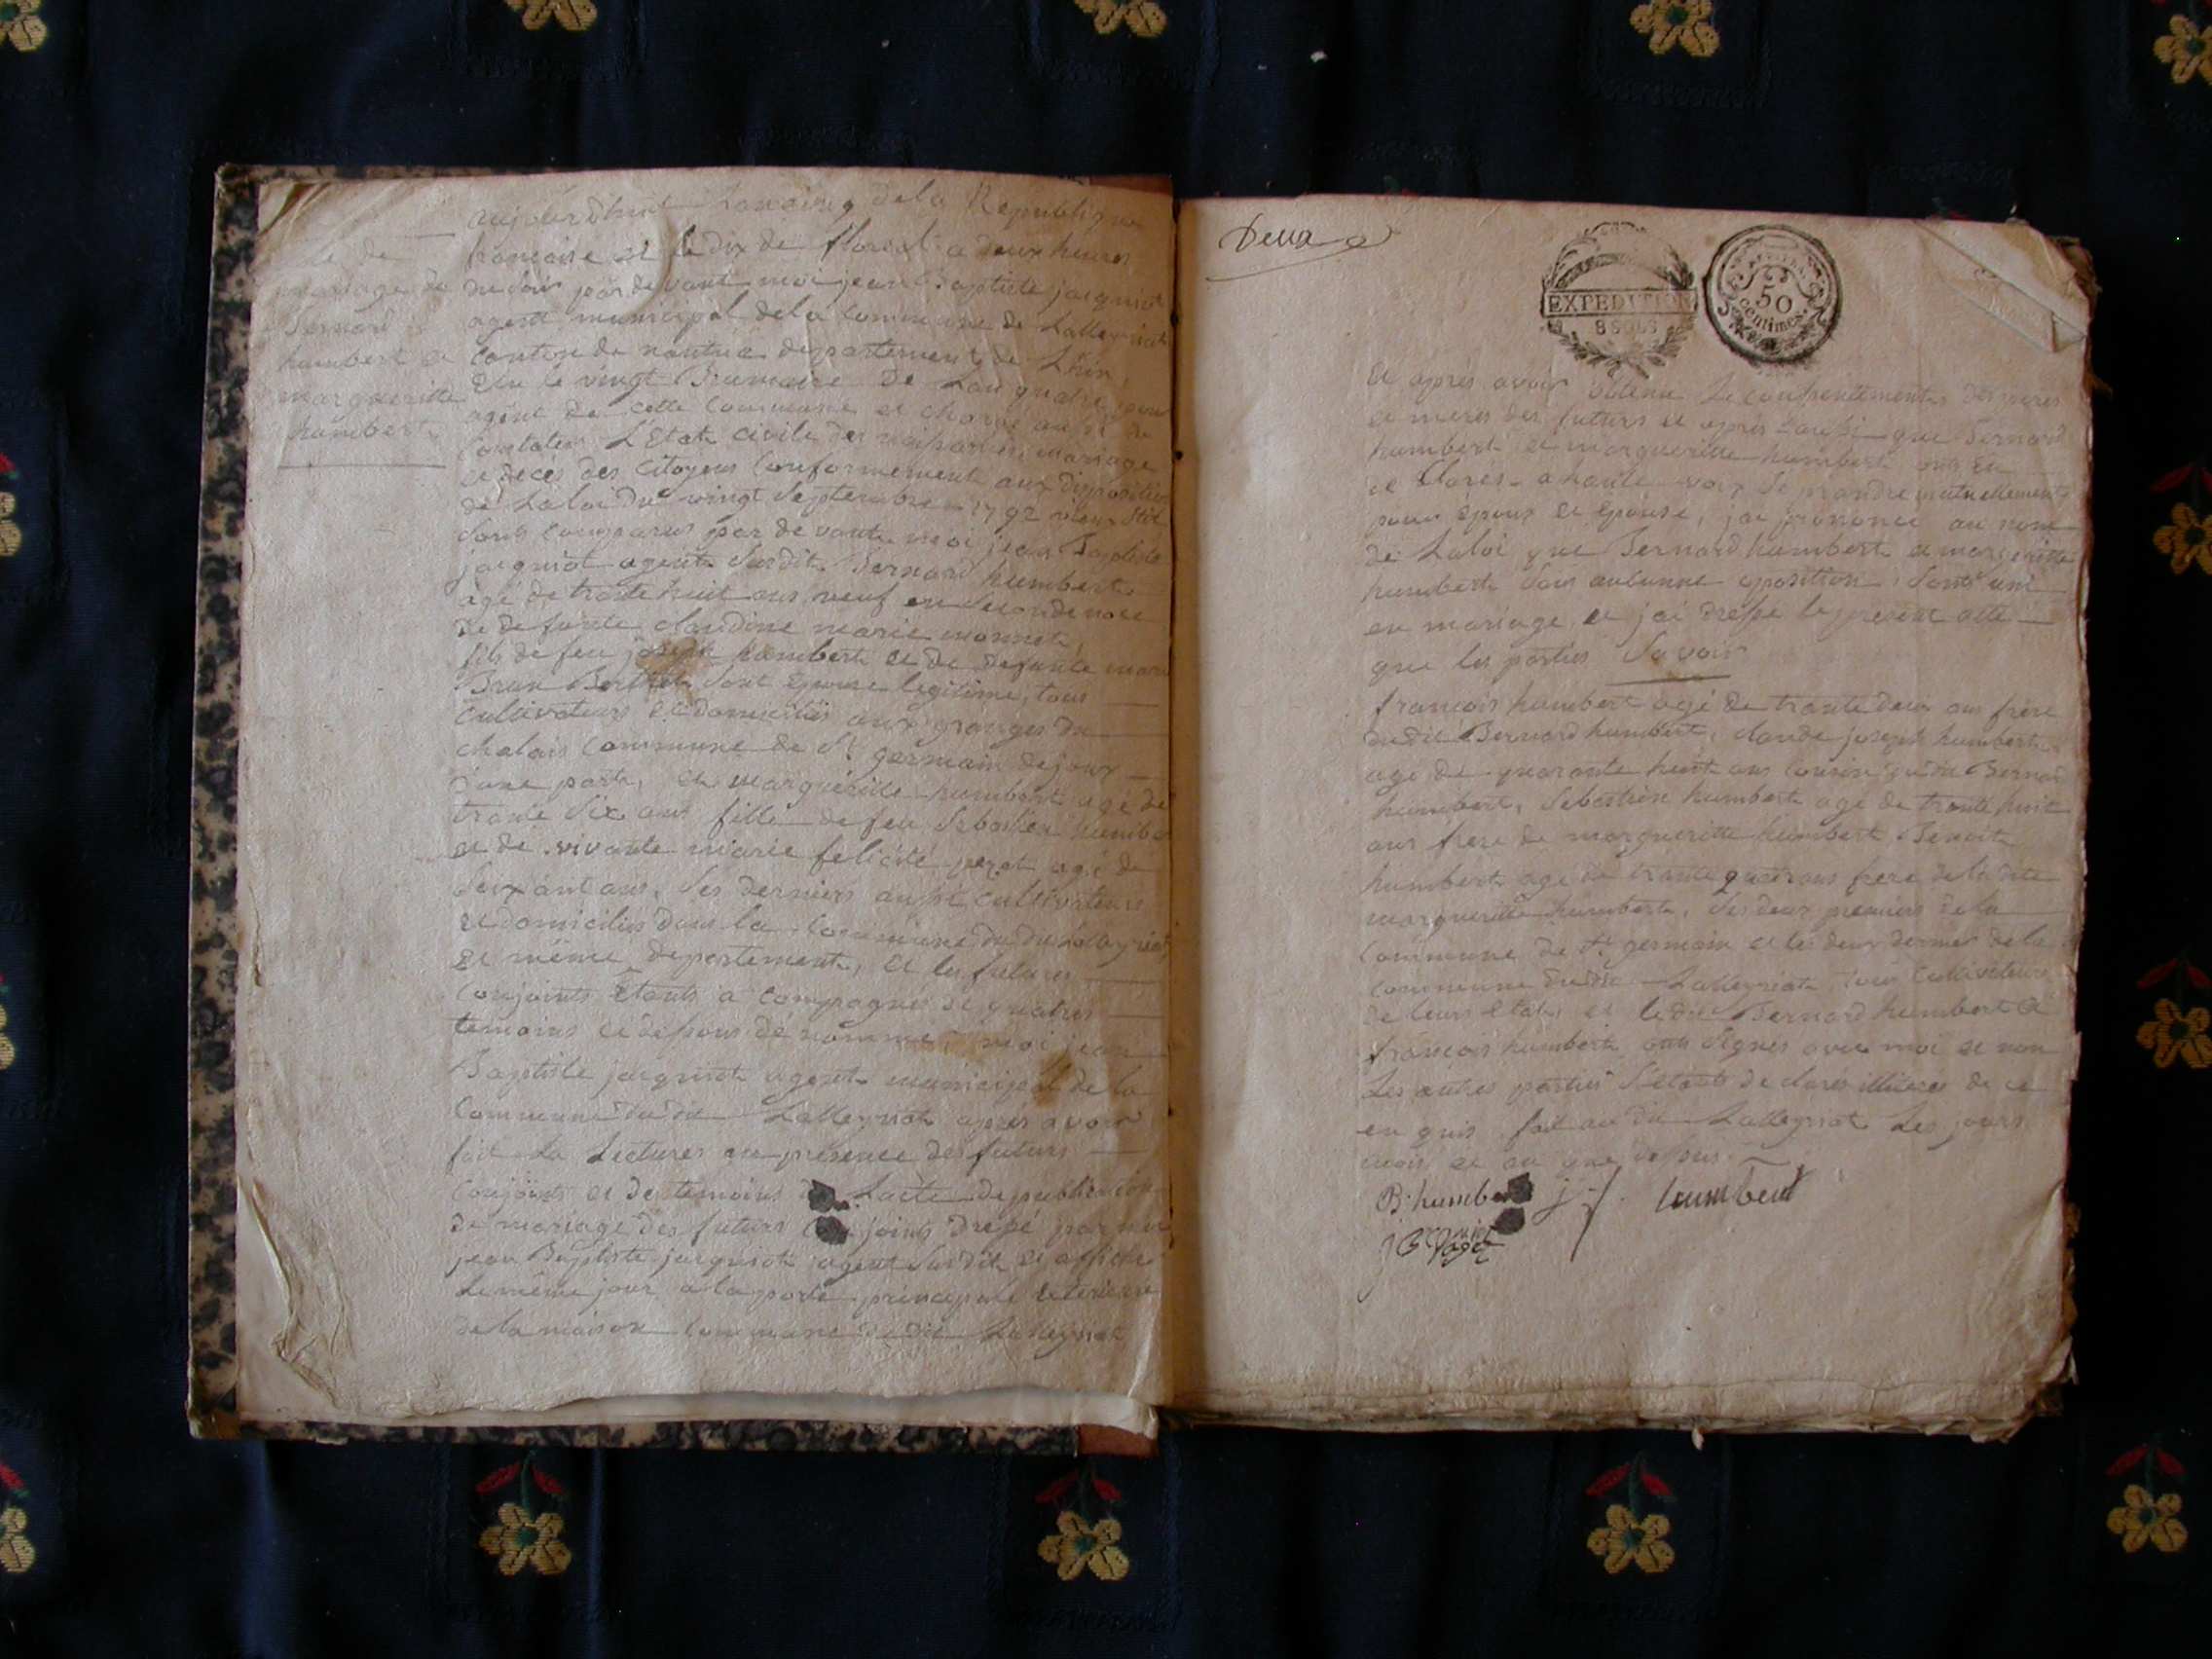 de
mariage de
Bernard
humbert et
margueritte
humbert
aujourdhuit Lan cinq de la Republique
francaise et le dix de floreal a deux heures
du soir par devant moi jean Baptiste jacquiot
agent municipal de la commune de Lalleyriat
canton de nantua departement de Lhin,
Elu le vingt Brumaire de Lan quatre pour
agent de cette commune et charge aussi de
constater L'Etat civile des naissances mariage
et deces des Citoyens Conformement aux disposition
de La loi du vingt Septembre 1792 vieux Stil
sont comparus par devant moi jean Baptiste
jacquiot agent Susdit Bernard humbert
agé de trante huit ans veuf en Seconde noce
de defunte claudine marie monnet,
fils de feu joseph humbert et de defunte marie
Brun Berthet Sont Epouse legitime, tous
cultivateurs et domicilies aux granges du
chalais commune de St germain dejoux
d'une part, et margueritte humbert agé de
trante Six ans fille de feu Sebastien humber
et de vivante marie felicité perat agé de
Soixant ans, Ses derniers aussi cultivateurs
et domicilies dans la Commune du du Lalleyriat
et même departement, et les futures
conjoints Etants a compagnes de quatres
temoins ci desous dé nommé, moi jean
Baptiste jacquiot agent municipal de la
commune du dit Lalleyriat apres avoir
fait La Lectures en présence des futurs
conjoints et des temoins de Lacte de publication
de mariage des futurs conjoints dressé par moi
jean Baptiste jacquiot agent Susdit et affiche
Le même jour a la porte principale exterieure
de la maison commune du dit Lalleyriat
Deux
EXPEDITION
8 SOUS
50
Centimes
et apres avoir obtenu Le consentement des peres
et meres des futurs et apres aussi que Bernard
humbert et margueritte humbert ont eu
de Clares a haute voix Se prandre mutuellement
pour epoux et Epouse, jai prononce au nom
de La loi que Bernard humbert et margeritte
humbert Sans aucunne oposition Sont uni
en mariage, et jai dresse le present acte
que les parties Savoir
francois humbert agé de trante deux ans frere
du dit Bernard humbert, claude joseph humbert
agé de quarante huit ans cousin du dit Bernard
humbert, Sebastien humbert agé de trante huit
ans frere de margueritte humbert Benoit
humbert agé de trante quatre ans frere de la dite
margueritte humbert, Les deux premiers de la
commune de St germain et les deux dernier de la
commune du dit Lalleyriat, tous Cultivateurs
de leurs Etats et le dit Bernard humbert et
francois humbert ont Signes avec moi et non
Les autres parties S'etant de clarés illiterés de ce
en quis fait au dit Lalleyriat Les jours
mois et an que dessus
B. humbert j f. humbert